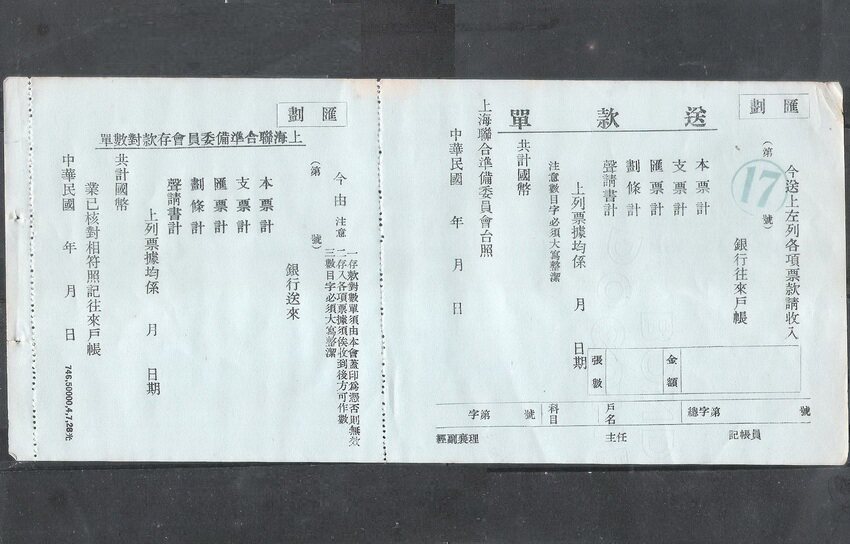 匯劃
送款單
今送上左列各項票款請收入
(第 17 號)
銀行往來戶帳
本票計
支票計
匯票計
劃條計
聲請書計
上列票據均係 月 日期
注意數目字必須大寫整潔
共計國幣
上海聯合準備委員會台照
中華民國 年 月 日
金額
張數
總字第 號
戶名
科目
字第 號
記帳員
主任
經副襄理
匯劃
上海聯合準備委員會存款對數單
(第 號)
今由
銀行送來
注意
一存款對數單須由本會蓋印為憑否則無效
二存入各項票據須俟收到後方可作數
三數目字必須大寫整潔
本票計
支票計
匯票計
劃條計
聲請書計
上列票據均係 月 日期
共計國幣
業已核對相符照記往來戶帳
中華民國 年 月 日
746,50000,4,7,28光